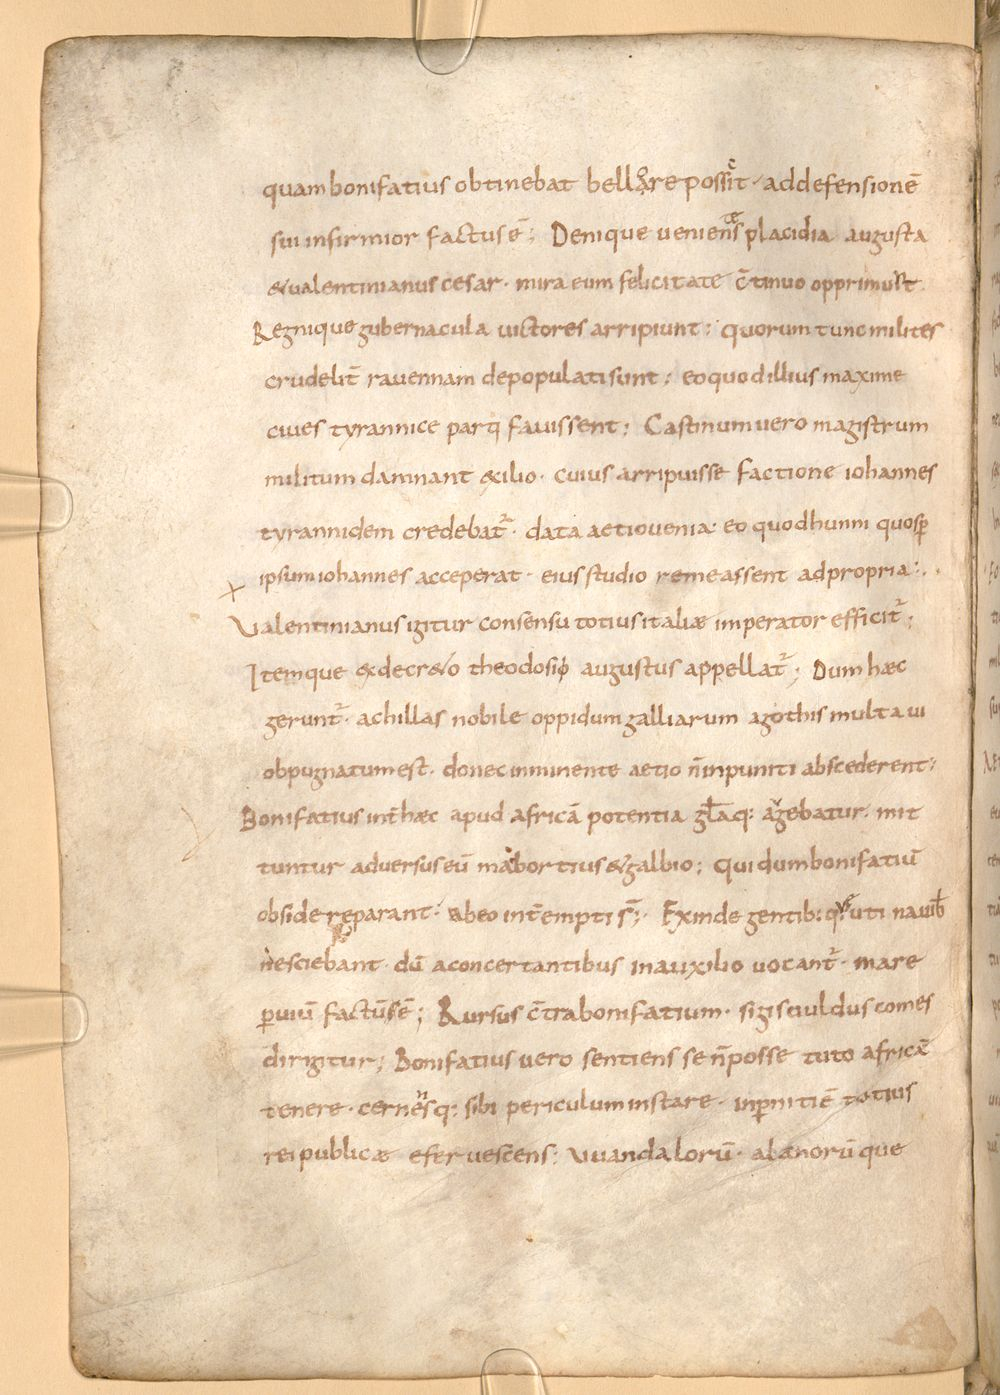 quam bonifatius obtinebat bellare possit · ad defensionē
sui infirmior factus ē ; Denique veniens placidia augusta
& valentinianus cesar · mira eum felicitate c̄tinuo opprimust
Regnique gubernacula victores arripiunt : quorum tunc milites
crudelit̄ rauennam depopulati sunt ; eo quod illius maxime
ciues tyrannice parti fauissent : Castinum uero magistrum
militum damnant exilio · cuius arripuisse factione iohannes
tyrannidem credebat̄ · data aetio uenia eo quod hunni quos ꝑ
ipsum iohannes acceperat · eius studio remeassent ad propria : .
Valentinianus igitur consensu totius italiæ imperator efficit̄ ;
Itemque & decr&o theodosio augustus appellat̄ ; Dum hæc
gerunt̄ · achillas nobile oppidum galliarum a gothis multa ui
obpugnatum est · donec inminente aetio n̄ inpuniti abscederent ;
Bonifatius int̄ hæc apud africā potentia gl̄aq: agebatur · mit
tuntur aduersus eū mabortius & galbio ; qui dum bonifatiū
obsidereparant · abeo int̄empti s̄ ; Exinde gentib: q uti nauib̄
nesciebant · dū a concertantibus in auxilio uocant̄ · mare
ꝑuiū factū s ē ; Rursus c̄tra bonifatium · sigisciuldus comes
dirigitur ; Bonifatius uero sentiens se n̄ posse tuto africā
tenere · cernensq: sibi periculum instare · in ꝑnitiē totius
rei publicæ eferuescens : Vuandalorū · alanorū que